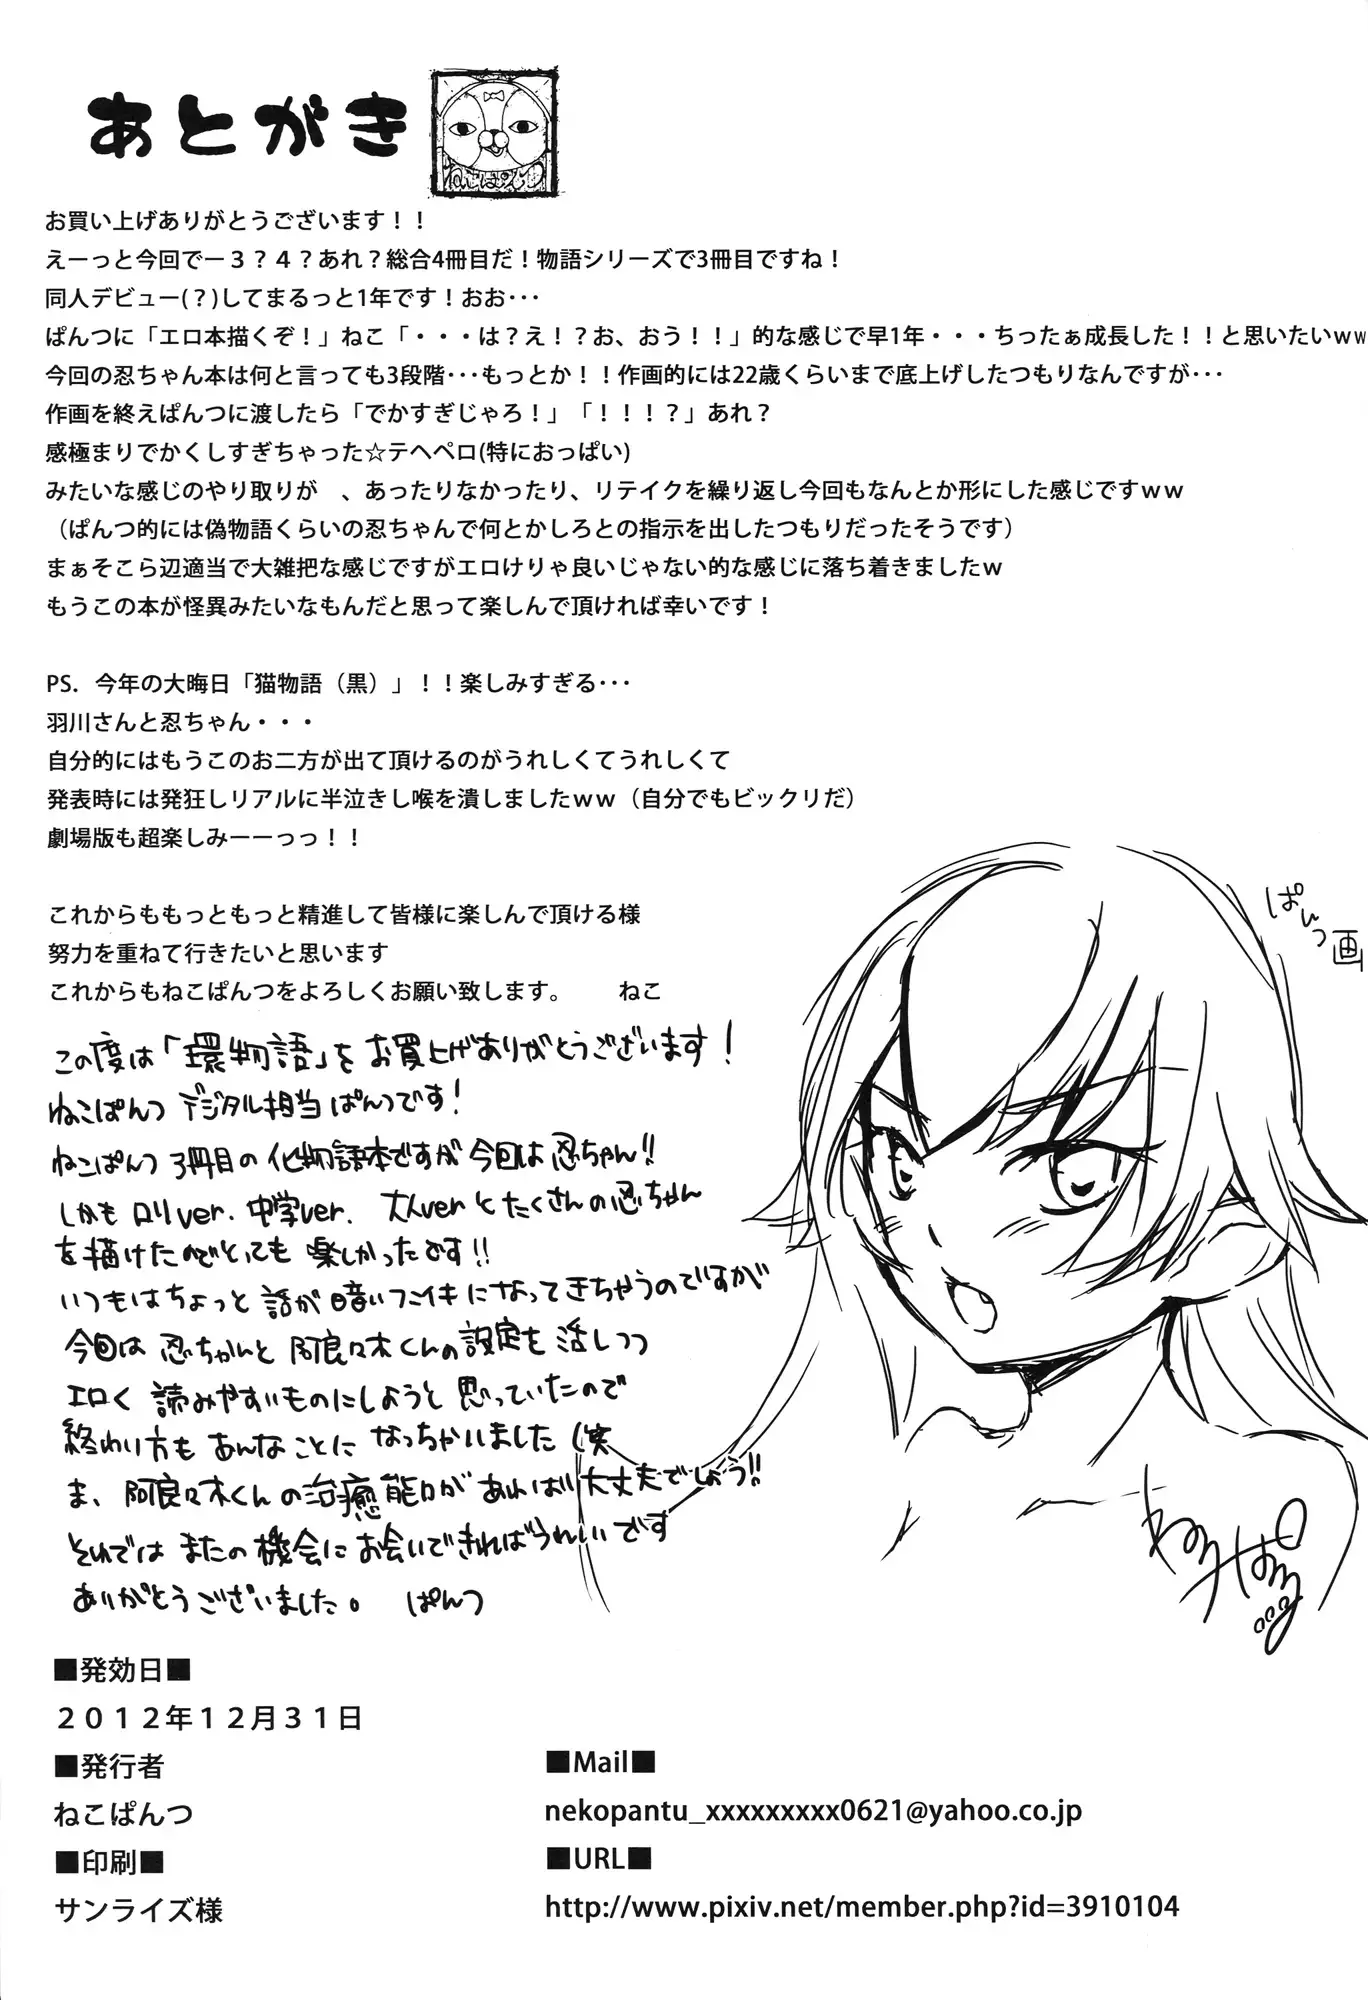 あとがき
ねこぱんつ
お買い上げありがとうございます！！
えーっと今回でー３？４？あれ？総合4冊目だ！物語シリーズで3冊目ですね！
同人デビュー(？)してまるっと1年です！おお･･･
ぱんつに「エロ本描くぞ！」ねこ「・・・は？え！？お、おう！！」的な感じで早1年・・・ちったぁ成長した！！と思いたいｗｗ
今回の忍ちゃん本は何と言っても3段階･･･もっとか！！作画的には22歳くらいまで底上げしたつもりなんですが･･･
作画を終えぱんつに渡したら「でかすぎじゃろ！」「！！！？」あれ？
感極まりでかくしすぎちゃった☆テヘペロ(特におっぱい)
みたいな感じのやり取りが　、あったりなかったり、リテイクを繰り返し今回もなんとか形にした感じですｗｗ
（ぱんつ的には偽物語くらいの忍ちゃんで何とかしろとの指示を出したつもりだったそうです）
まぁそこら辺適当で大雑把な感じですがエロけりゃ良いじゃない的な感じに落ち着きましたｗ
もうこの本が怪異みたいなもんだと思って楽しんで頂ければ幸いです！
PS．今年の大晦日「猫物語（黒）」！！楽しみすぎる･･･
羽川さんと忍ちゃん・・・
自分的にはもうこのお二方が出て頂けるのがうれしくてうれしくて
発表時には発狂しリアルに半泣きし喉を潰しましたｗｗ（自分でもビックリだ）
劇場版も超楽しみーーっっ！！
これからももっともっと精進して皆様に楽しんで頂ける様
努力を重ねて行きたいと思います
これからもねこぱんつをよろしくお願い致します。　　ねこ
ぱんつ画
この度は「環物語」をお買上げありがとうございます！
ねこぱんつ デジタル担当 ぱんつです！
ねこぱんつ 3冊目の化物語本ですが今回は忍ちゃん!!
しかもロリver. 中学ver. 大人verとたくさんの忍ちゃん
を描けたのでとても楽しかったです!!
いつもはちょっと話が暗いフンイキになってきちゃうのですが
今回は忍ちゃんと阿良々木くんの設定を活しつつ
エロく読みやすいものにしようと思っていたので
終わり方もあんなことになっちゃいました（笑
ま、阿良々木くんの治癒能力があれば大丈夫でしょう!!
それではまたの機会にお会いできればうれしいです
ありがとうございました。　ぱんつ
ねこぱんつ
■発効日■
２０１２年１２月３１日
■発行者
ねこぱんつ
■印刷■
サンライズ様
■Mail■
nekopantu_xxxxxxxxx0621@yahoo.co.jp
■URL■
http://www.pixiv.net/member.php?id=3910104